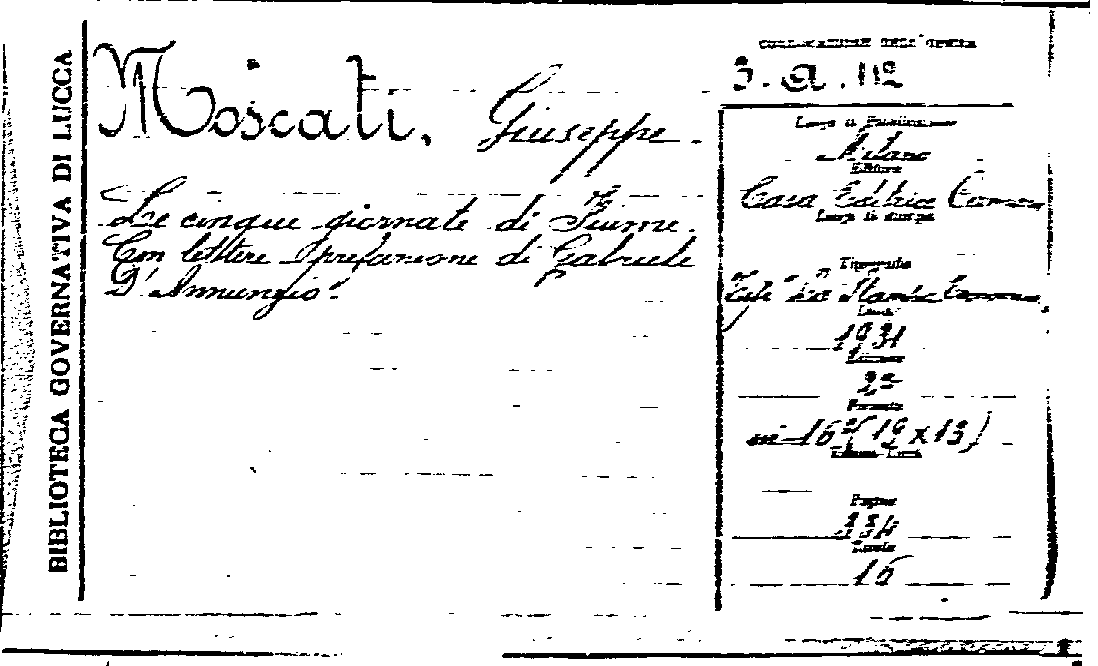 BIBLIOTECA GOVERNATIVA DI LUCCA
Moscati, Giuseppe.
Le cinque giornate di Fiume.
Con lettere prefazione di Gabriele
D'Annunzio.
COLLOCAZIONE DELL'OPERA
3. a. 112
Luogo di Pubblicazione
Milano
Editore
Casa Editrice
Luogo di stampa
Tipografia
Tip. "La Stampa
Anno
1931
Edizione
2ª
Formato
in 16º (19 x 13)
Pagine
334
Tavole
16